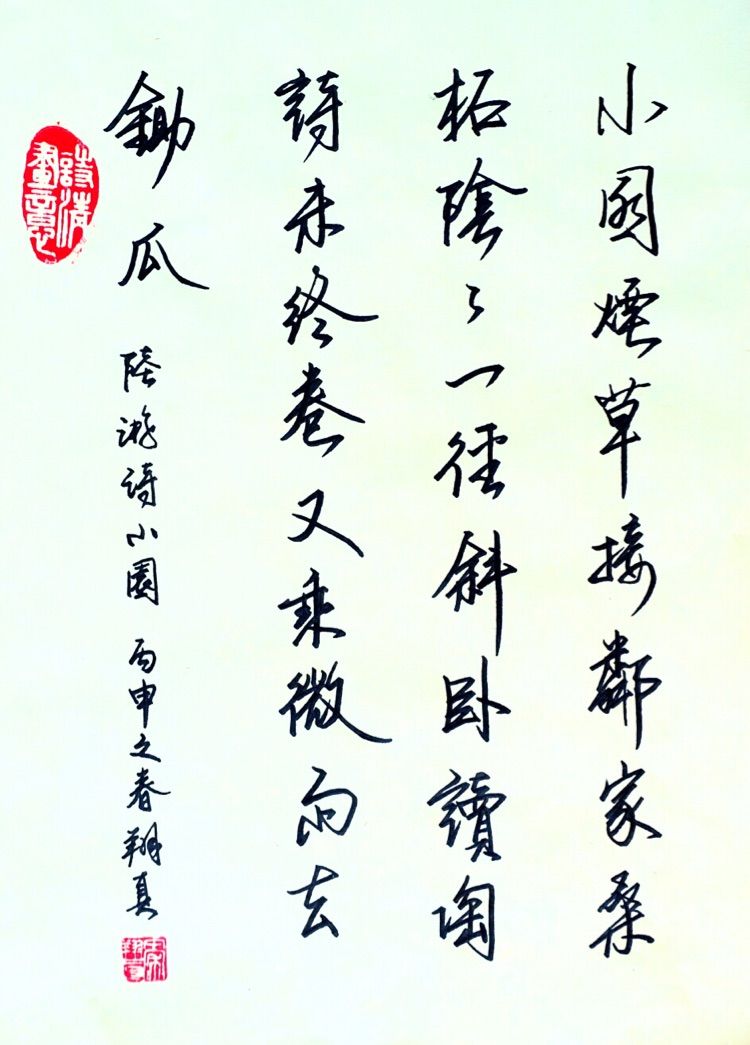 小園煙草接鄰家桑
柘陰〻一徑斜臥讀陶
詩未終卷又乘微雨去
鋤瓜
陸游詩小園 丙申之春翔真
詩情畫意